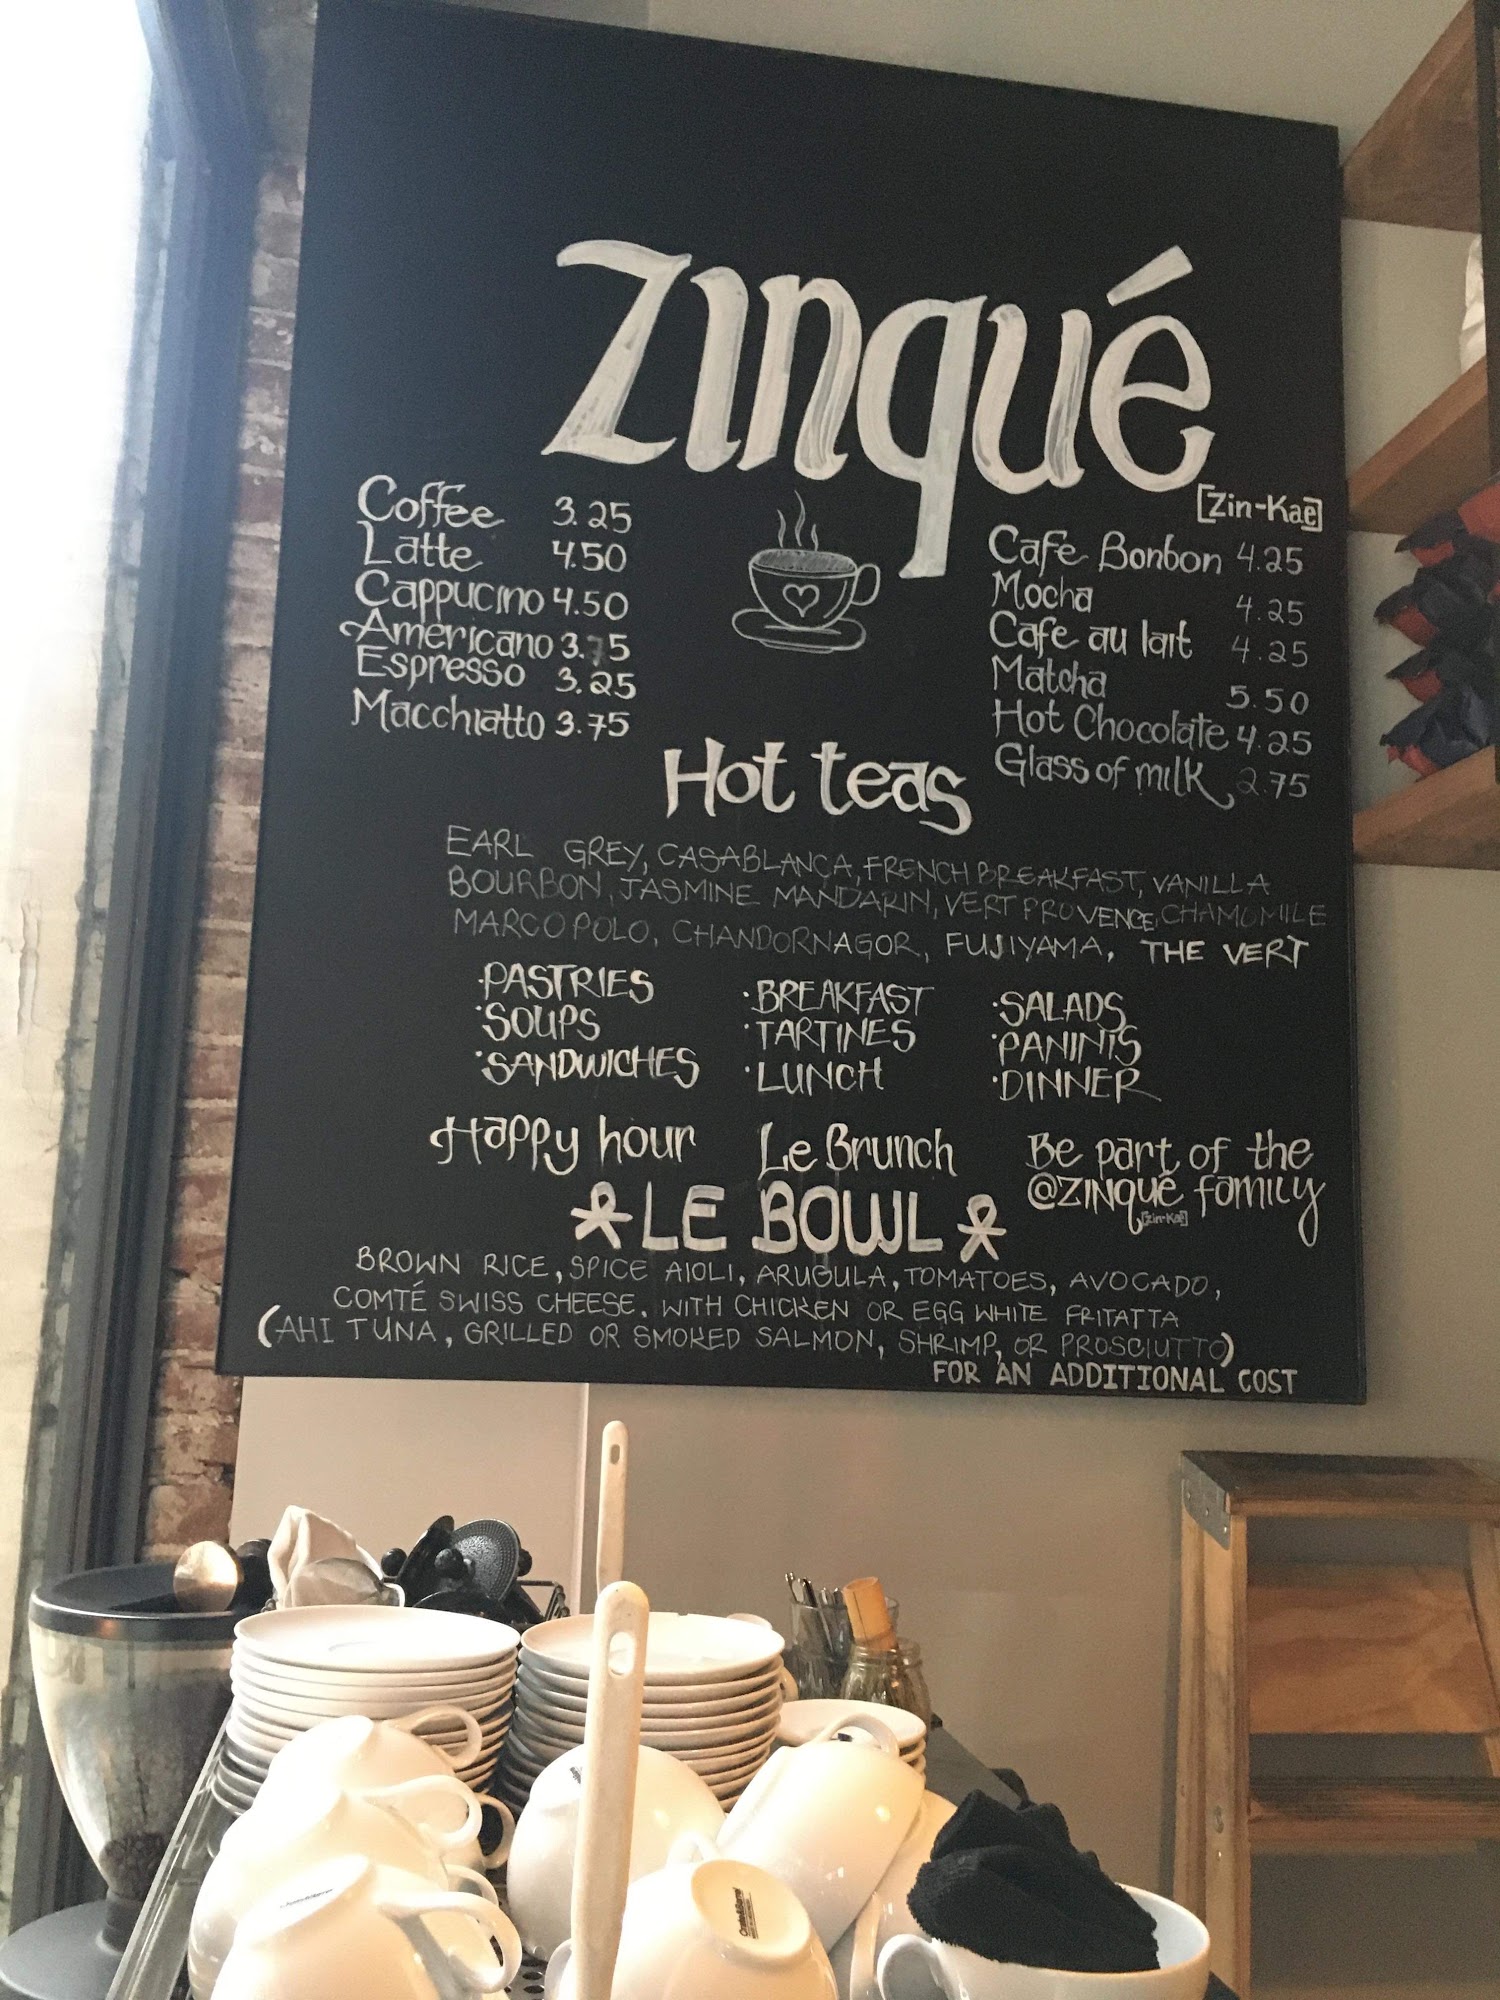 Zinqué
[Zin-Kae]
Coffee 3.25
Latte 4.50
Cappucino 4.50
Americano 3.75
Espresso 3.25
Macchiatto 3.75
Cafe Bonbon 4.25
Mocha 4.25
Cafe au lait 4.25
Matcha 5.50
Hot Chocolate 4.25
Glass of milk 2.75
Hot teas
EARL GREY, CASABLANCA, FRENCH BREAKFAST, VANILLA
BOURBON, JASMINE MANDARIN, VERT PROVENCE, CHAMOMILE
MARCO POLO, CHANDORNAGOR, FUJIYAMA, THE VERT
·PASTRIES
·SOUPS
·SANDWICHES
·BREAKFAST
·TARTINES
·LUNCH
·SALADS
·PANINIS
·DINNER
Happy hour
Le Brunch
Be part of the
@ZINQUÉ family
[zin-Kae]
LE BOWL
BROWN RICE, SPICE AIOLI, ARUGULA, TOMATOES, AVOCADO,
COMTÉ SWISS CHEESE, WITH CHICKEN OR EGG WHITE FRITATTA
(AHI TUNA, GRILLED OR SMOKED SALMON, SHRIMP, OR PROSCIUTTO)
FOR AN ADDITIONAL COST
Crate&Barrel